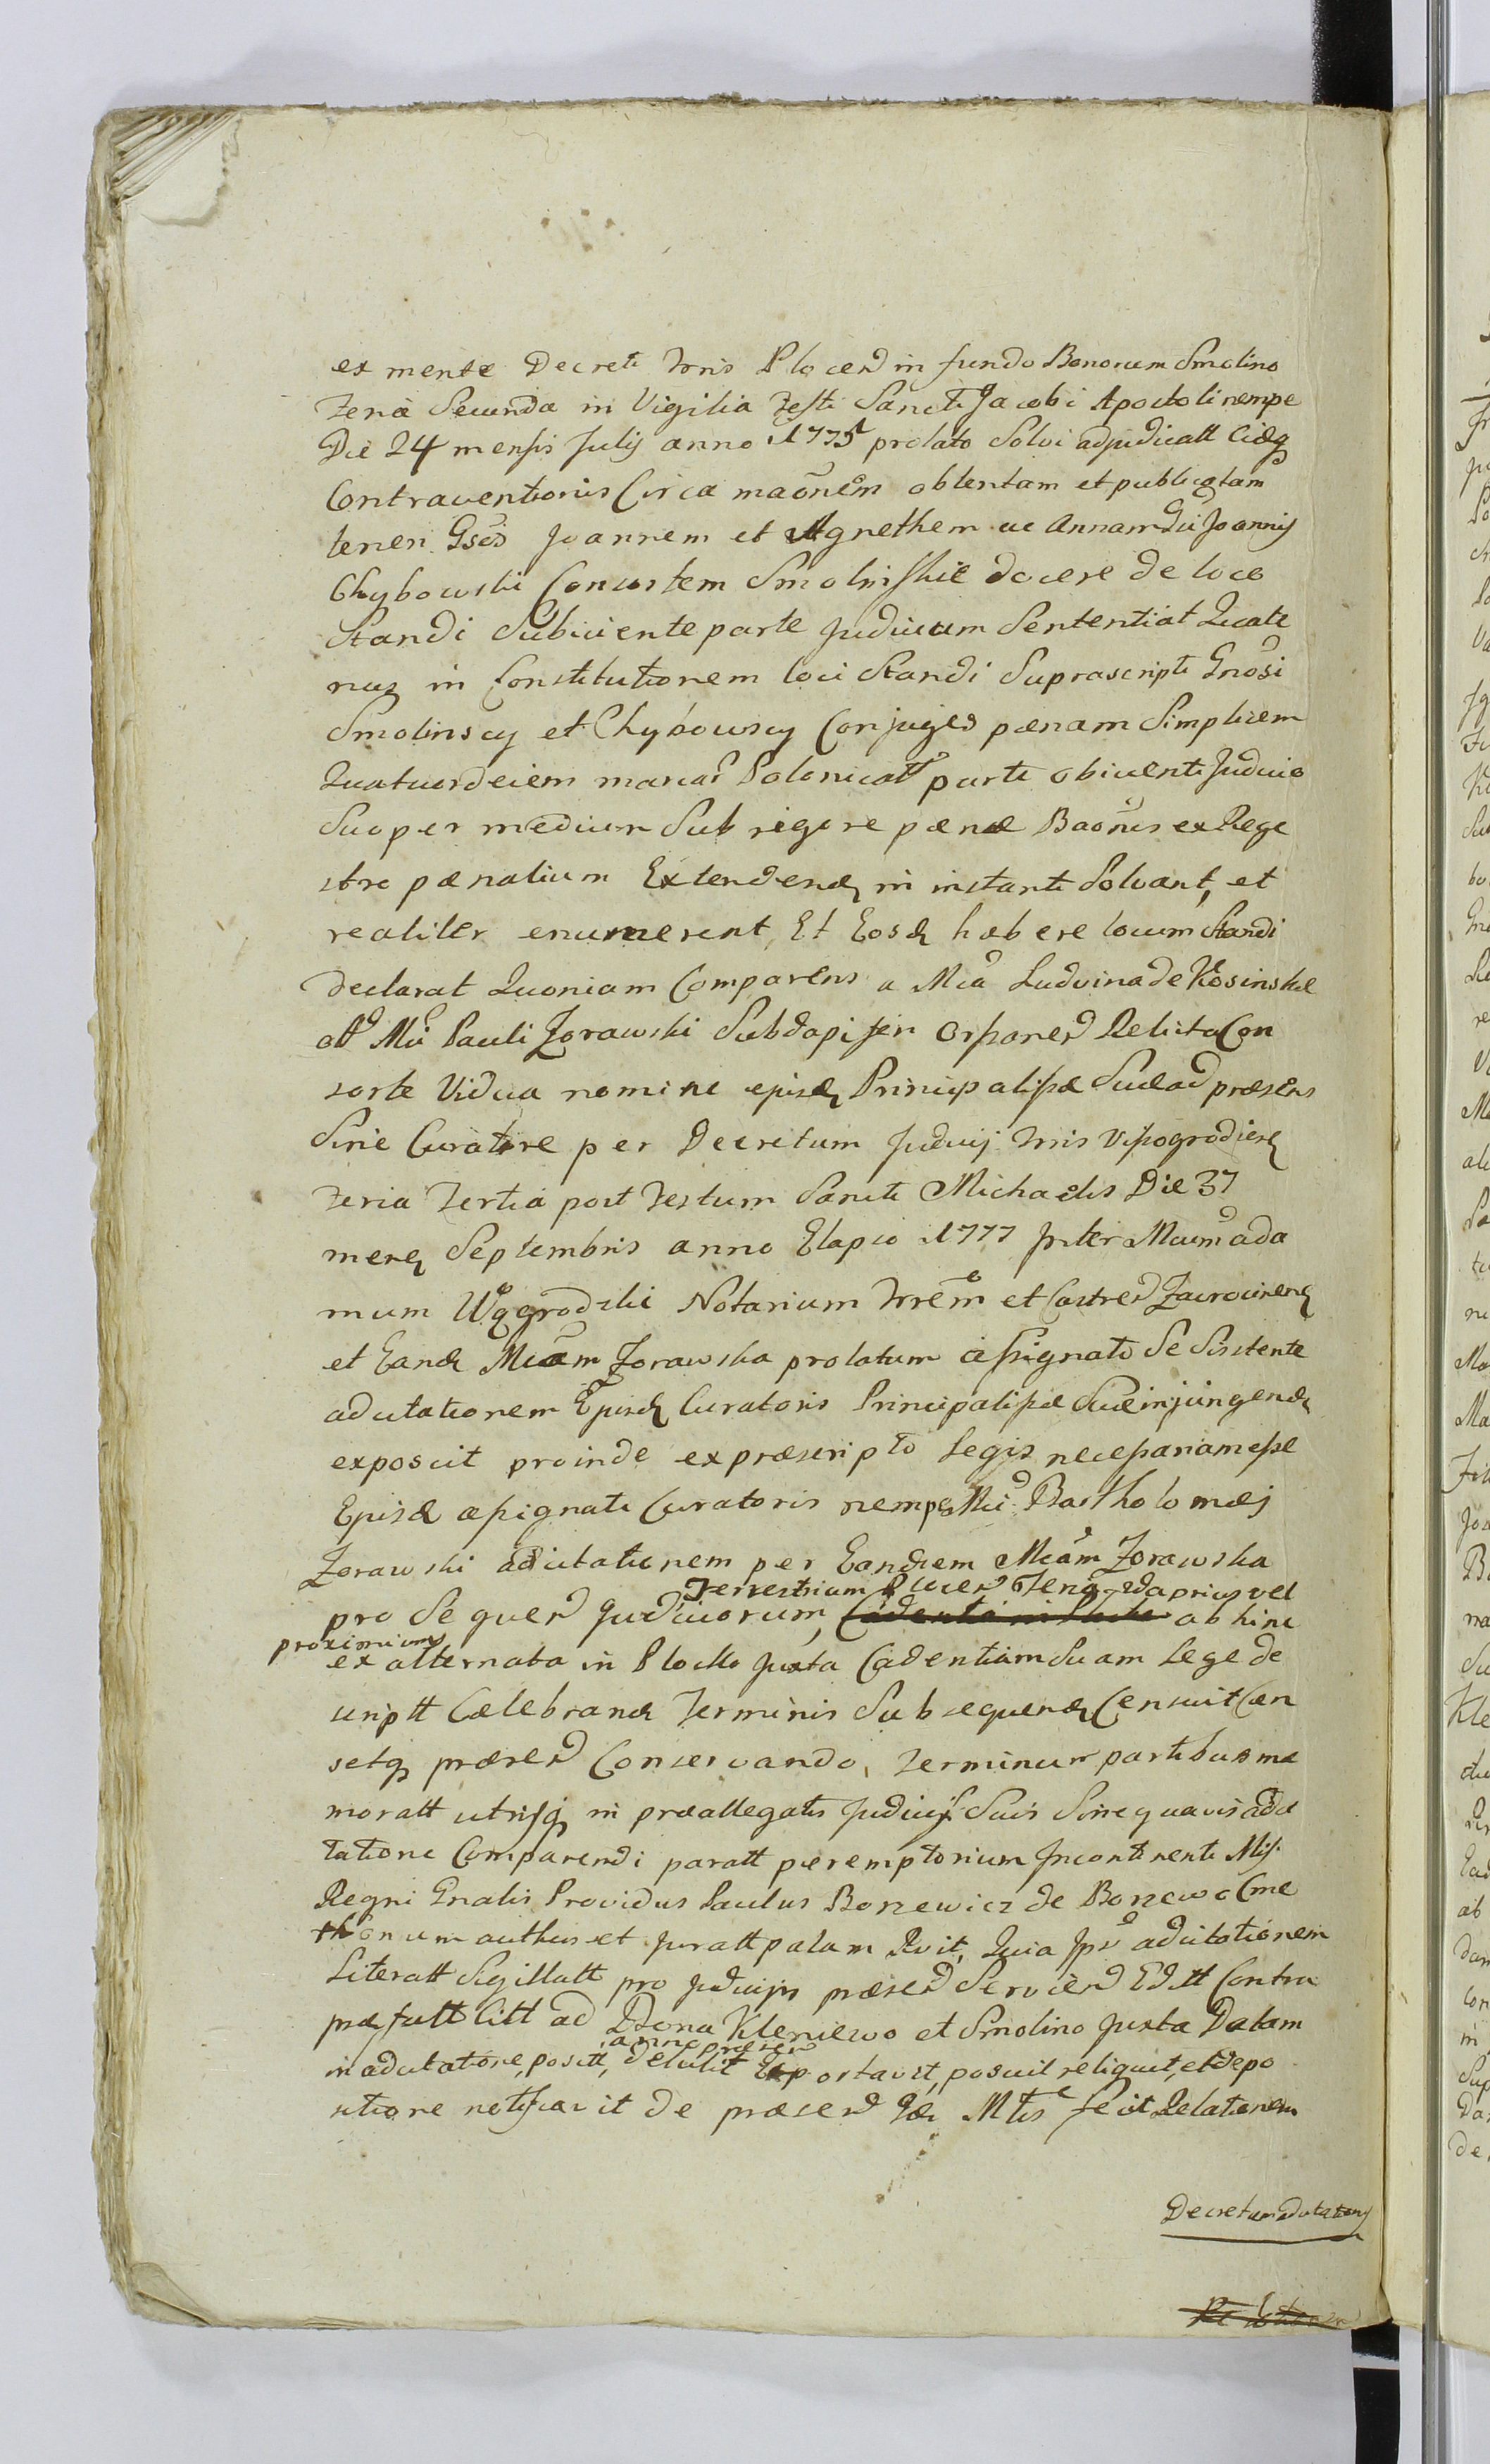 ex mente Decreti Trris Plocen in fundo Bonorum Smolino
Feria Secunda in Vigilia Festi Sancti Jacobi Apostoli nempe
Die 24 mensis Julij anno 1775 prolato Solvi adjudicatt
Contraventionis Circa maõnem obtentam et publicatam
teneri Gsos Joannem et Agnethem ac Annam Gsi Joannis
Chybowski Consortem Smolinskie docere de loco
Standi Subiiciente parte Judicium Sententiat Quate
nus in Constitutionem loci Standi Suprascripti Gnosi
Smolinscy et Chybowscy Conjuges pænam Simplicem
Quatuordeciem marcar Polonicall parti obiicenti Judicio
Suo per medium Sub rigore pænæ Baonis ex Rege
stro pænalium Extenden in instanti Solvant, et
realiter enumerent, Et Eosd habere locum Standi
Declarat Quoniam Comparens a Mca Ludvina de Kosinskie
olt Mci Pauli Zorawski Subdapiferi Orszanen Relicta Con
sorte Vidua nomine ejusd Principalissæ Suæ ad præsens
Sine Curatore per Decretum Judicij Trris Vissogrodien
Feria Tertia post Festum Sancti Michaelis Die 37
mens Septembris anno Elapso 1777 Inter Mcum ada
mum Wągrodzki Notarium Trrem et Castren Zacrocimen
et Eand Mcam Zorawska prolatum assignato Se Sistente
adcitationem Ejusd Curatoris Principalissæ Suæ injungend
exposcit proinde ex præscripto Legis necessariam esse
Ejusd assignati Curatoris nempe Mci Bartholomæj
Zorawski adcitationem per Eandem Mcam Zorawska
Terrestrium Plocen Feria 2da prius vel
pro Sequen Judiciorum, ab hinc
proximiory
ex alternata in Plocko juxta Cadentiam Suam Lege de
scriptt Cælebrand Terminis Subsequend Censuit Cen
setq præsen Conservando, Terminum partibus me
moratt utrisq in præallegatis Judicijs Suis Sine quavis adci
tatione Comparendi paratt peremptorium Incontinenti Mis
Regni Gnalis Providus Paulus Bonewicz de Bonewo Cme
thonum authus et Juratt palam Rcit, Quia Ipse adcitationem
Literatt Sigillatt pro Judicijs præsen Servien Editt Contra
præfatt Citt ad Bona Kleniewo et Smolino Juxta Datam
anno præsen
in adcitatione, positt, detulit Exportavit, posuit reliquit, et depo
sitione notificavit de præsen Mtis fecit Relationem
Decretum adcitationis
Relationem